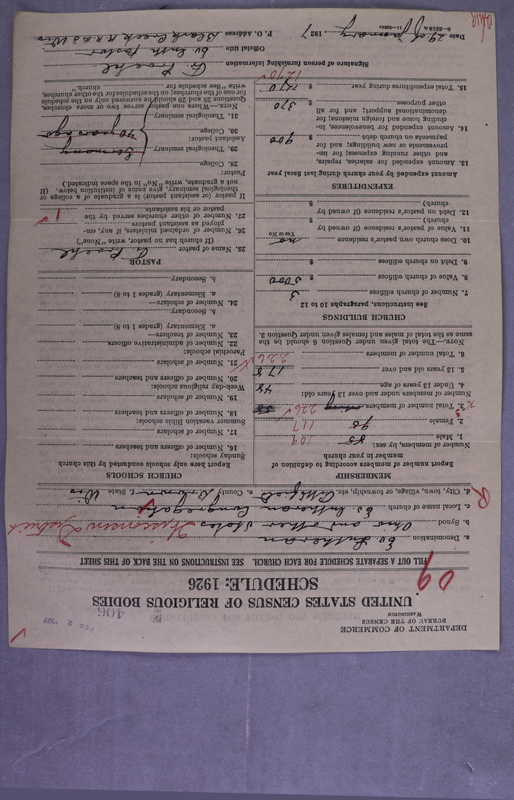 DEPARTMENT OF COMMERCE
BUREAU OF THE CENSUS
WASHINGTON
406
UNITED STATES CENSUS OF RELIGIOUS BODIES
SCHEDULE: 1926
09
FILL OUT A SEPARATE SCHEDULE FOR EACH CHURCH. SEE INSTRUCTIONS ON THE BACK OF THIS SHEET
a. Denomination Ev Lutheran
b. Synod Ohio and other States Wisconsin District
c. Local name of church Ev. Lutheran Congregation
d. City, town, village, or township, etc. e. County f. State Wis
MEMBERSHIP
Report number of members according to definition of
member in your church
Number of members, by sex:
1. Male 85 109
2. Female 95 117
3. Total number of members 226
Number of members under and over 13 years old:
4. Under 13 years of age 48
5. 13 years old and over 178
6. Total number of members 226
NOTE.—The total given under Question 6 should be the
same as the total of males and females given under Question 3.
CHURCH BUILDINGS
See Instructions, paragraphs 10 to 12
7. Number of church edifices 3
8. Value of church edifices $ 5000
9. Debt on church edifices $
10. Does church own pastor's residence no
Yes or No
11. Value of pastor's residence (if owned by
church) $
12. Debt on pastor's residence (if owned by
church) $
EXPENDITURES
Amount expended by your church during last fiscal year
13. Amount expended for salaries, repairs,
and other running expenses; for im-
provements or new buildings; and for
payments on church debt $ 900
14. Amount expended for benevolences, in-
cluding home and foreign missions; for
denominational support; and for all
other purposes 370
15. Total expenditures during year $ 1270
1270
CHURCH SCHOOLS
Report here only schools conducted by this church
Sunday schools:
16. Number of officers and teachers
17. Number of scholars
Summer vacation Bible schools:
18. Number of officers and teachers
19. Number of scholars
Week-day religious schools:
20. Number of officers and teachers
21. Number of scholars
Parochial schools:
22. Number of administrative officers
23. Number of teachers—
a. Elementary (grades 1 to 8)
b. Secondary
24. Number of scholars—
a. Elementary (grades 1 to 8)
b. Secondary
PASTOR
25. Name of pastor
(If church has no pastor, write "None")
26. Number of ordained ministers, if any, em-
ployed as assistant pastors
27. Number of other churches served by the
pastor or his assistants 1
If pastor (or assistant pastor) is a graduate of a college or
theological seminary, give name of institution below. (If
not a graduate, write "No" in the space indicated.)
Pastor:
28. College
29. Theological seminary Germany
Assistant pastor: 40 years ago
30. College
31. Theological seminary
NOTE.—Where one pastor serves two or more churches,
Questions 25 and 26 should be answered only on the schedule
for one of the churches; on the schedules for the other churches,
write "See schedule for church."
Signature of person furnishing information
Official title Ev Luth Pastor
P. O. Address Black Creek Wis
Date 29 of January 1927